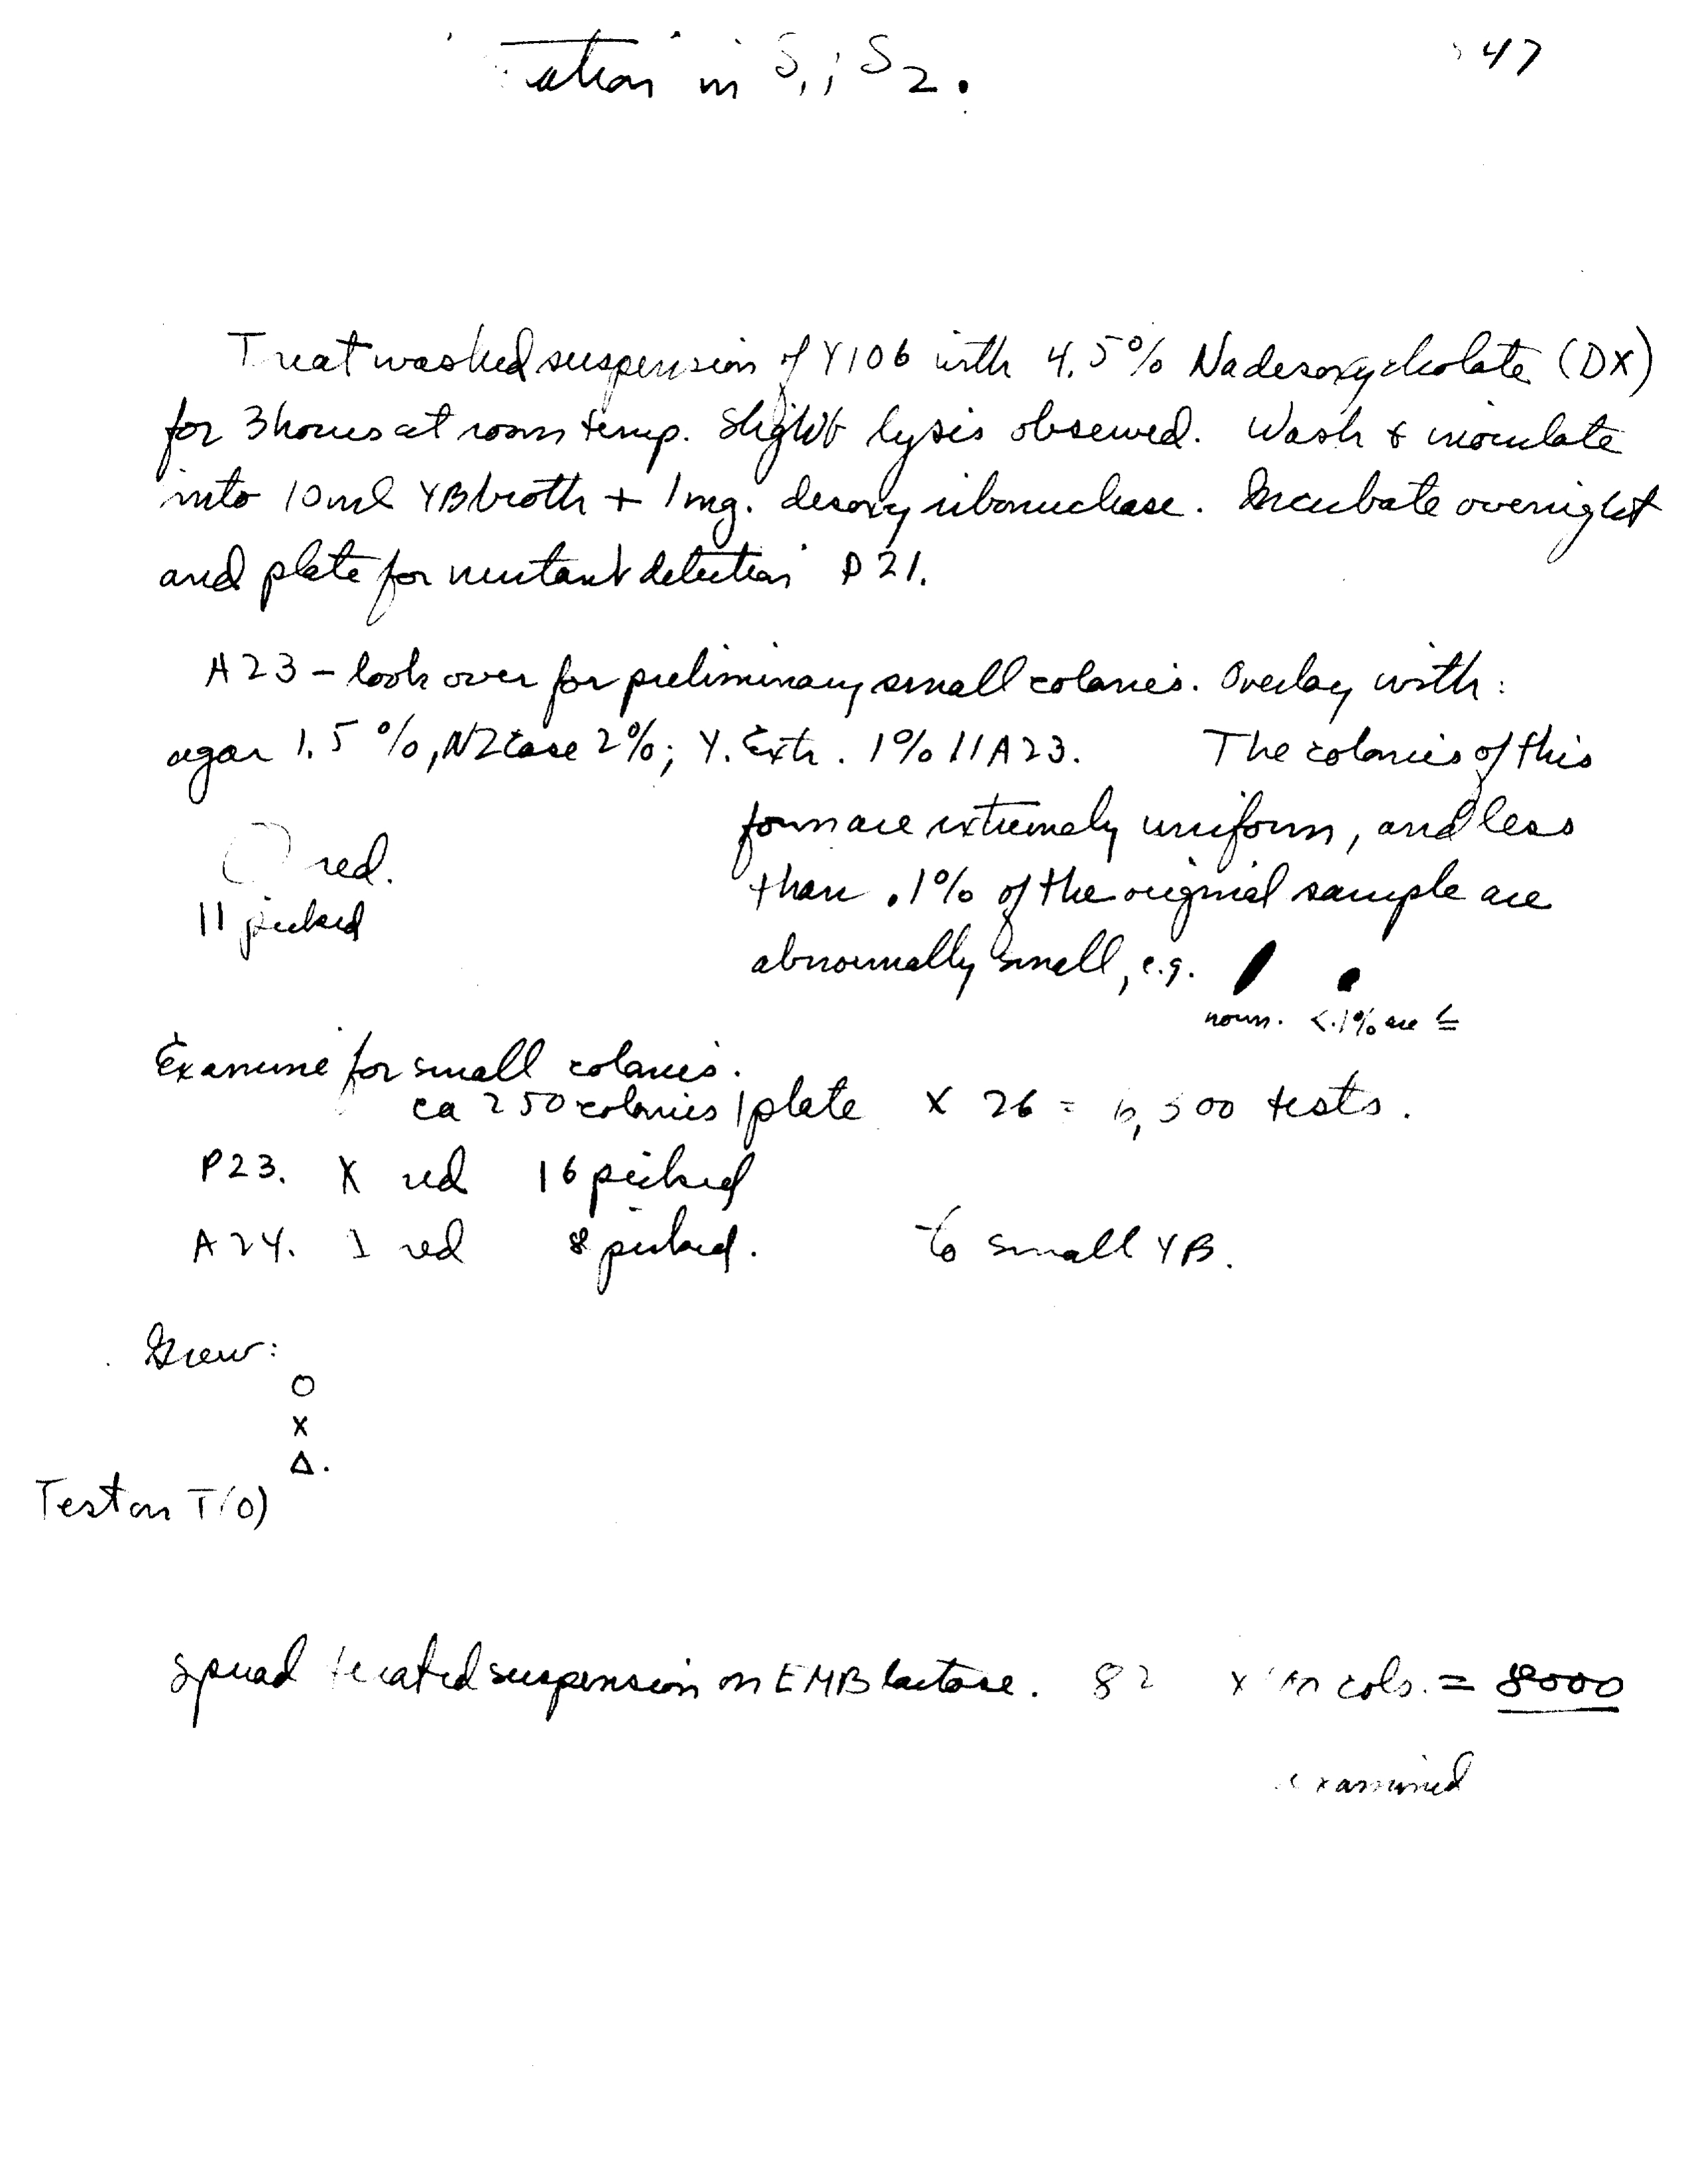 ation in S1; S2.
47
Treat washed suspension of Y106 with 4.5% Na desoxycholate (DX)
for 3 hours at room temp. Slight lysis observed. Wash & inoculate
into 10 ml YB broth + 1 mg. desoxyribonuclease. Incubate overnight
and plate for mutant detection P21.
A23 – look over for preliminary small colonies. Overlay with:
agar 1.5%, NZCase 2%; Y. Extr. 1% 11A23. The colonies of this
form are extremely uniform, and less
O red.
than .1% of the original sample are
11 picked
abnormally small, e.g.
norm. <.1% are ≤
Examine for small colonies.
ca 250 colonies / plate × 26 = 6,500 tests.
P23. X red 16 picked
A24. red 8 picked. to small YB.
Grew:
O
X
Δ.
Test on T(0)
Spread treated suspension on EMB lactose. 82 × cols. = 8000
examined